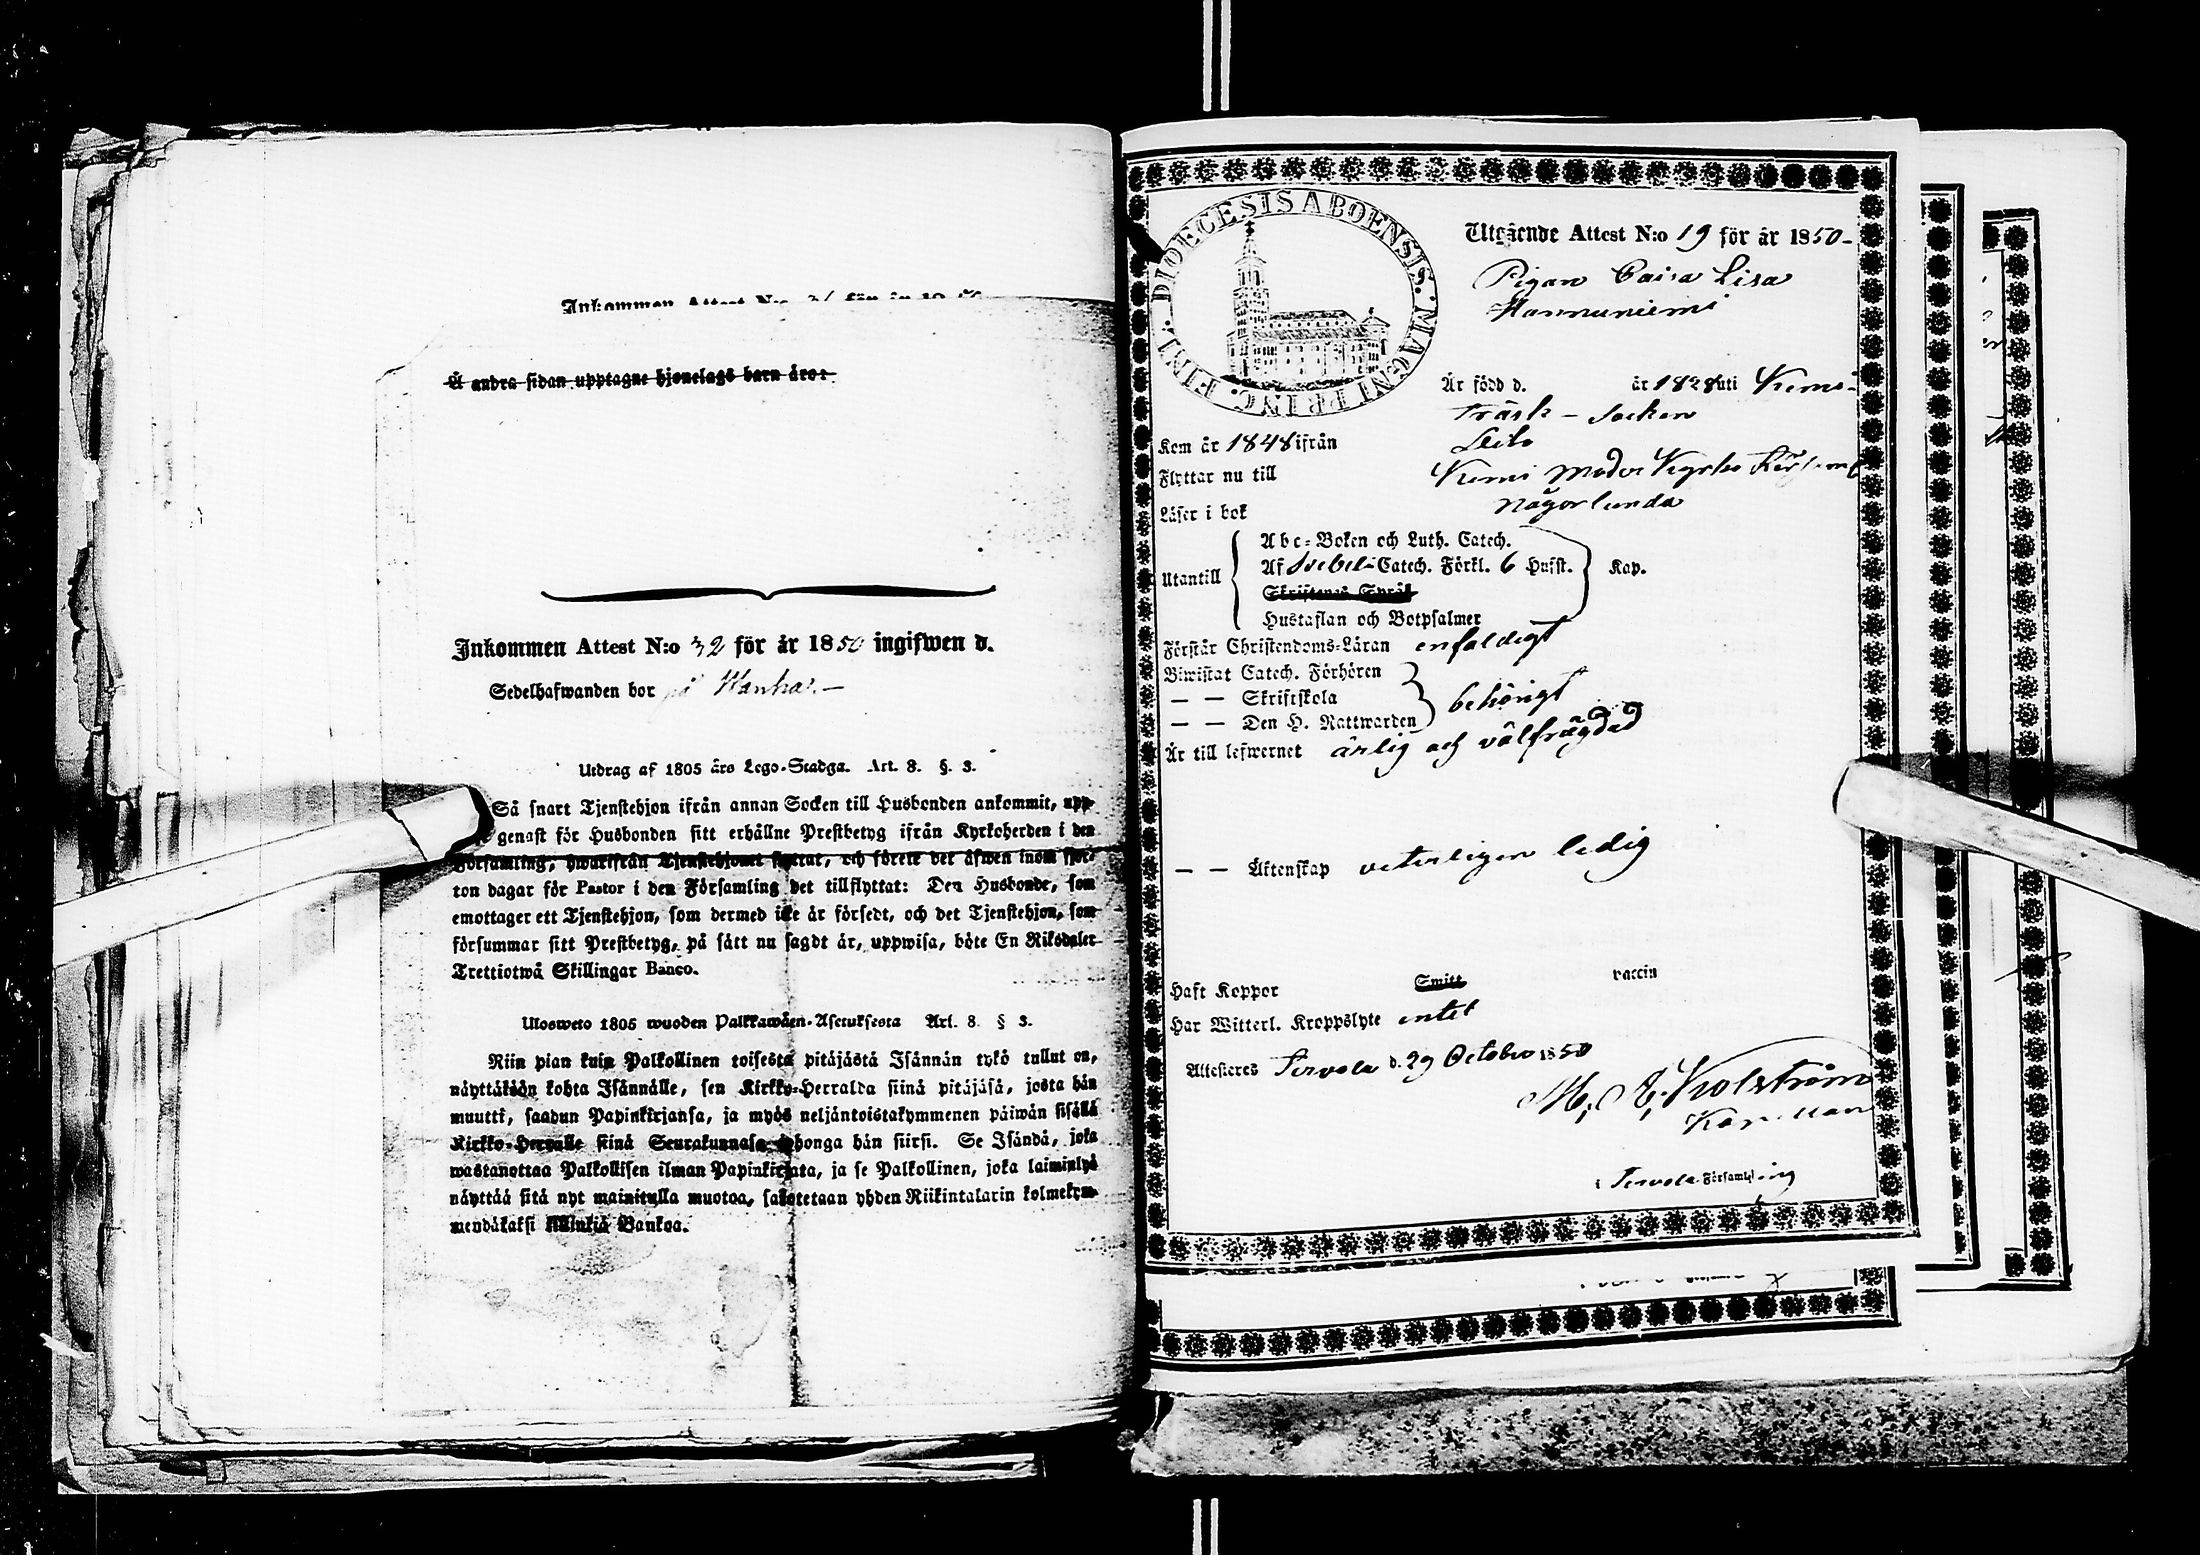 Å andra sidan upptagne hjonelags barn äro:
Inkommen Attest N:o 32 för år 1850 ingifwen d.
Sedelhafwanden bor på
Utdrag af 1805 års Lego-Stadga. Art. 8. §. 3.
Så snart Tjenstehjon ifrån annan Socken till Husbonden ankommit, upp-
genast för Husbonden sitt erhållne Prestbetyg ifrån Kyrkoherden i den
Församling, hwarifrån Tjenstehjonet flyttat, och förete det äfwen inom fjor-
ton dagar för Pastor i den Församling det tillflyttat: Den Husbonde, som
emottager ett Tjenstehjon, som dermed icke är försedt, och det Tjenstehjon, som
försummar sitt Prestbetyg, på sätt nu sagdt är, uppwisa, böte En Riksdaler
Trettiotwå Skillingar Banco.
Ulosweto 1805 wuoden Palkkawäen-Asetuksesta Art. 8. § 3.
Niin pian kuin Palkollinen toisesta pitäjästä Isännän tykö tullut on,
näyttäkään kohta Isännälle, sen Kirkko-Herralda siinä pitäjäsä, josta hän
muutti, saadun Papinkirjansa, ja myös neljäntoistakymmenen päiwän sisällä
Kirkko-Herralle siinä Seurakunnasa, johonga hän siirsi. Se Isändä, joka
wastanottaa Palkollisen ilman Papinkirjata, ja se Palkollinen, joka laiminlyö
näyttää sitä nyt mainitulla muotoa, sakotetaan yhden Riikintalarin kolmekym-
mendäkaksi killinkiä Bankoa.
DIOECESIS ABOENSIS. MAGNI PRINC. FINL.
Utgående Attest N:o 19 för år 1850
Pigan Caisa Lisa
Hannuniemi
Är född d. år 1828 uti Kemi-
Träsk - Socken
Kom år 1848 ifrån
Flyttar nu till Kemi Moder Kyrko
Läser i bok någorlunda
Utantill Abc-Boken och Luth. Catech.
Af Svebel. Catech. Förkl. 6 Hufst. Kap.
Skriftenes Språk
Hustaflan och Botpsalmer
Förstår Christendoms-Läran enfaldigt
Biwistat Catech. Förhören
— — Skriftskola behörigt
— — Den H. Nattwarden
Är till lefwernet ärlig och välfrägdad
— — Äktenskap veterligen ledig
Haft Koppor Smitt vaccin
Har Witterl. Kroppslyte intet
Attesteres Tervola d. 29 October 1850
i Tervola Församling